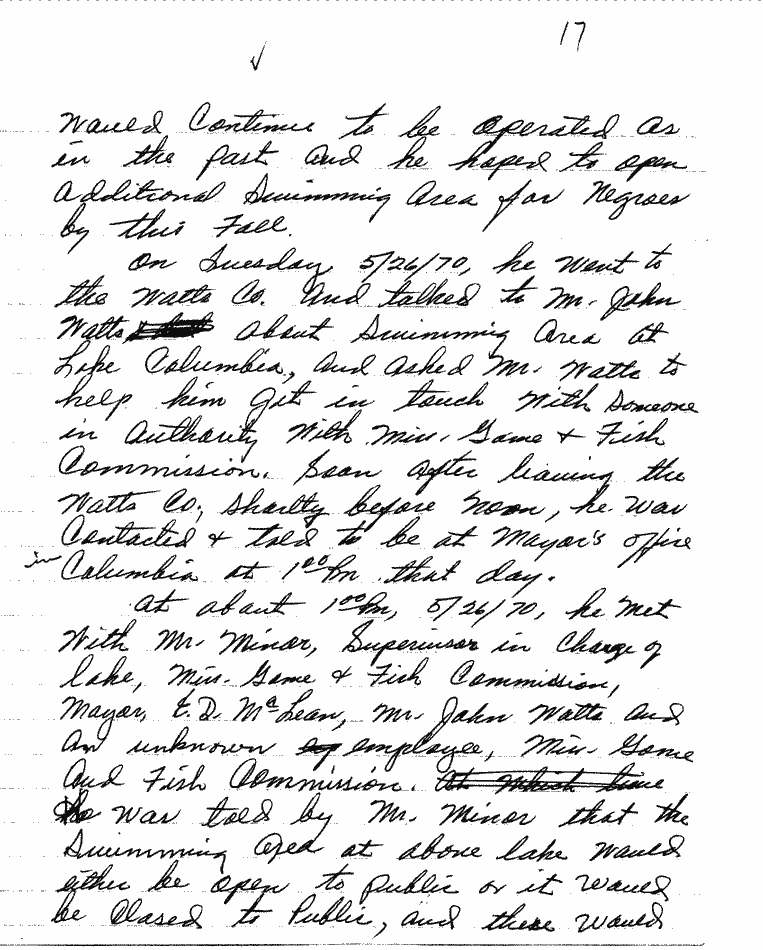 17
✓
would Continue to be operated as
in the past and he hoped to open
Additional Swimming Area for Negroes
by this Fall.
On Tuesday, 5/26/70, he went to
the Watts Co. And talked to Mr. John
Watts about Swimming Area at
Lake Columbia, and asked Mr. Watts to
help him get in touch with someone
in Authority with Miss. Game & Fish
Commission. Soon after leaving the
Watts Co., shortly before noon, he was
Contacted & told to be at Mayor's office
in Columbia at 1:00 Pm that day.
At about 1:00 Pm, 5/26/70, he met
with Mr. Minor, Supervisor in Charge of
lake, Miss. Game & Fish Commission,
Mayor, E.D. McLean, Mr. John Watts and
An unknown employee, Miss. Game
And Fish Commission. At which time
He was told by Mr. Minor that the
Swimming Area at above lake would
either be open to public or it would
be Closed to Public, and there would